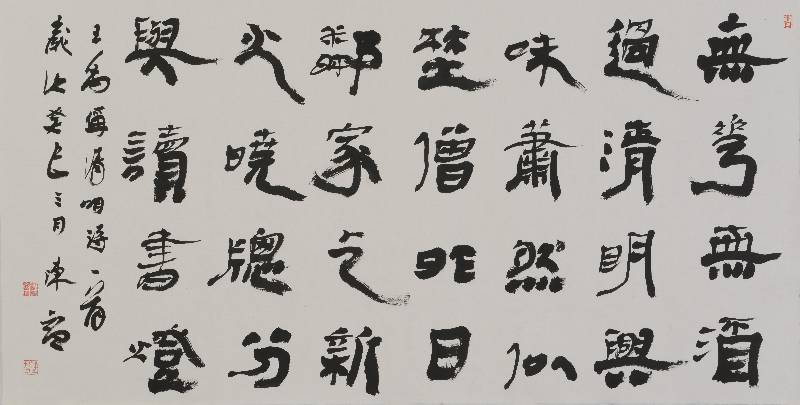 無花無酒
過清明興
味蕭然似
埜僧昨日
鄰家乞新
火曉牕分
與讀書燈
王禹偁清明詩一首
歲次癸巳三月陳